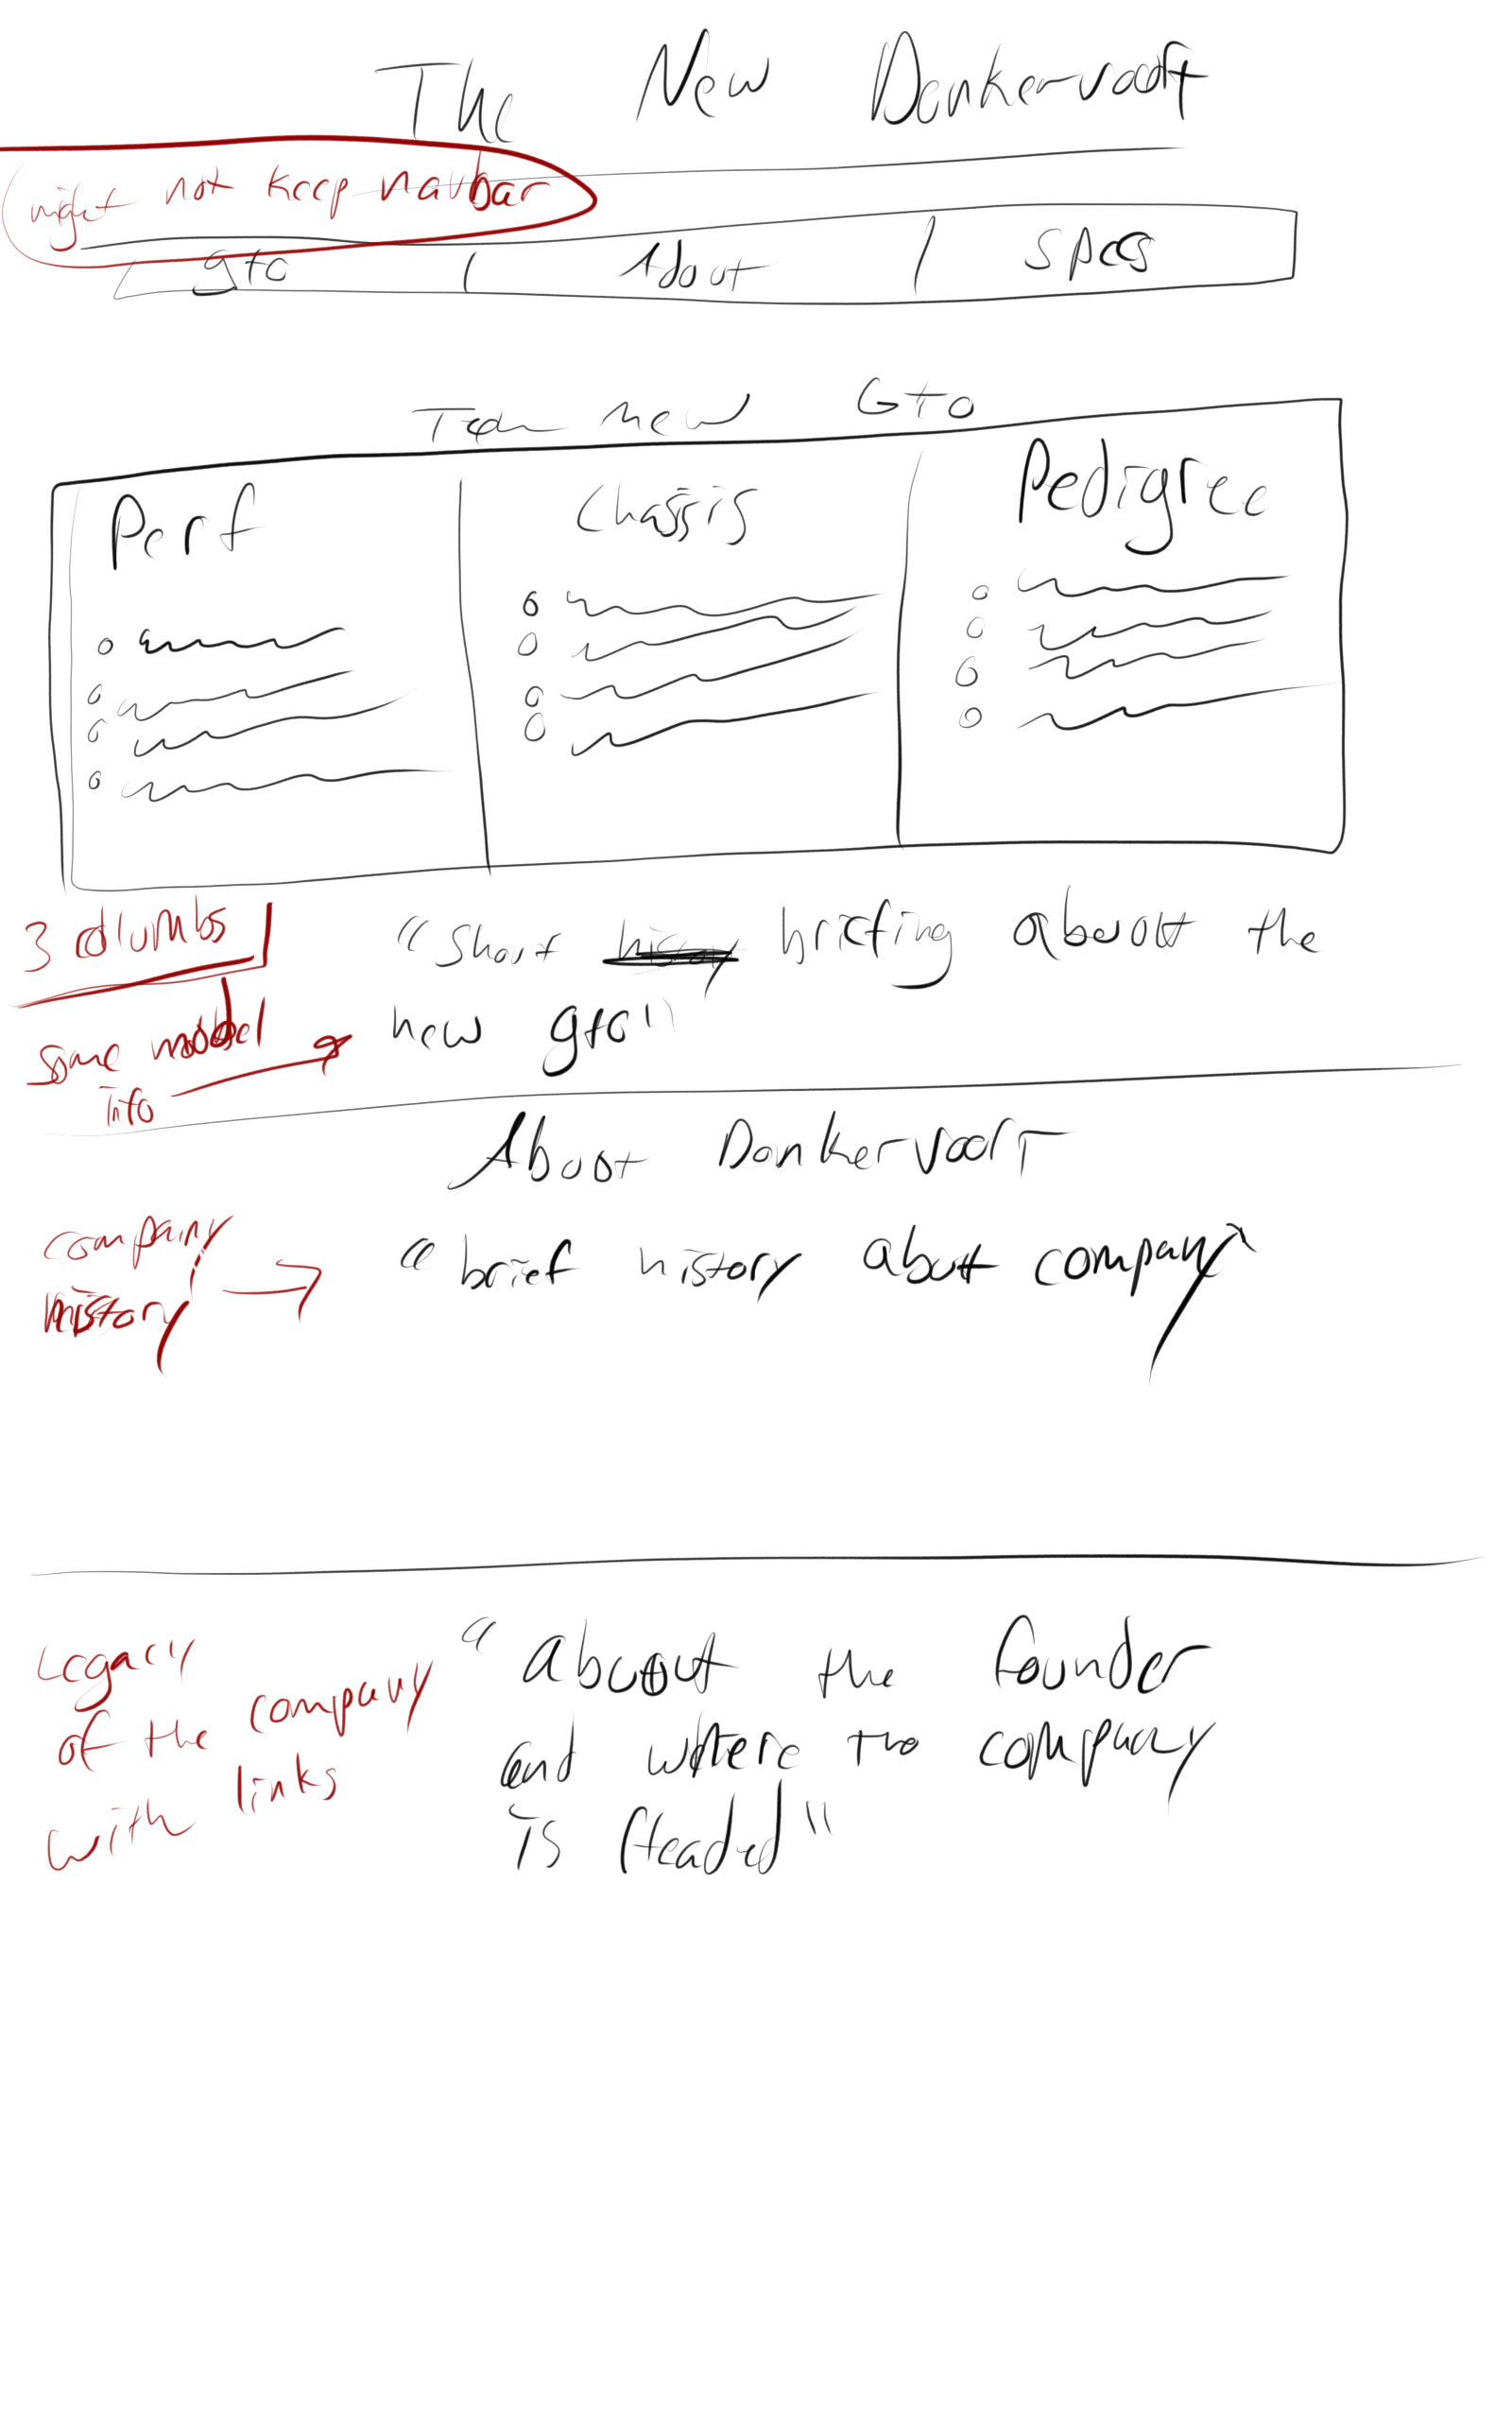 The New Donkervoort
might not keep navbar
gto | About | specs
new Gto
Perf
Chassis
Pedigree
3 columbs
"Short briefing about the
new gto"
some model
info
About Donkervoort
company
history
"brief history about company"
Legacy
of the company
with links
"about the founder
and where the company
is Headed"